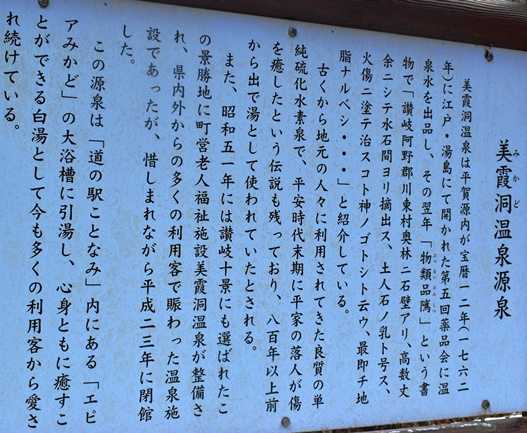 美霞洞温泉源泉
みかど
美霞洞温泉は平賀源内が宝暦一二年(一七六二
年)に江戸・湯島にて開かれた第五回薬品会に温
泉水を出品し、その翌年「物類品隲」という書
物で「讃岐阿野郡川東村奥林ニ石壁アリ、高数丈
余ニシテ水石間ヨリ摘出ス、土人石ノ乳ト号ス、
火傷ニ塗テ治スコト神ノゴトシト云ウ、最即チ地
脂ナルベシ・・・」と紹介している。
古くから地元の人々に利用されてきた良質の単
純硫化水素泉で、平安時代末期に平家の落人が傷
を癒したという伝説も残っており、八百年以上前
から出で湯として使われていたとされる。
また、昭和五一年には讃岐十景にも選ばれたこ
の景勝地に町営老人福祉施設美霞洞温泉が整備さ
れ、県内外からの多くの利用客で賑わった温泉施
設であったが、惜しまれながら平成二三年に閉館
した。
この源泉は「道の駅ことなみ」内にある「エピ
アみかど」の大浴槽に引湯し、心身ともに癒すこ
とができる白湯として今も多くの利用客から愛さ
れ続けている。